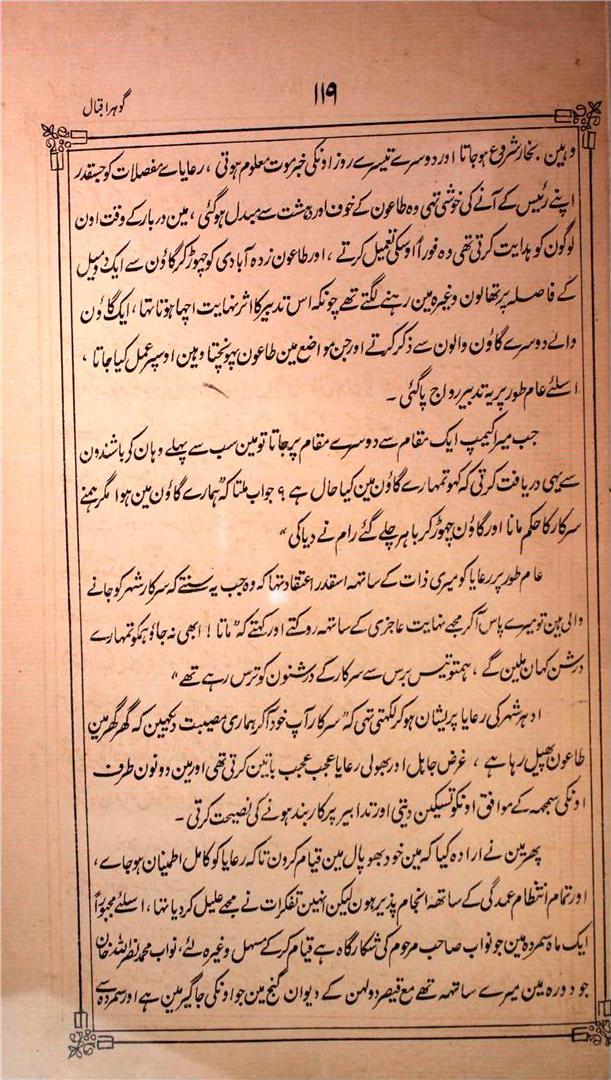 ۱۱۹
گوہر اقبال
وہین بخار شروع ہو جاتا اور دوسرے تیسرے روز اونکی خبر موت معلوم ہوتی ، رعایاے مفصلات کو جسقدر
اپنے رئیس کے آنے کی خوشی تھی وہ طاعون کے خوف اور دہشت سے مبدل ہوگئی ، مین دربار کے وقت اون
لوگون کو ہدایت کرتی تھی وہ فوراً اوسکی تعمیل کرتے ، اور طاعون زدہ آبادی کو چہوڑ کر گاؤن سے ایک دو میل
کے فاصلہ پر تھالون وغیرہ مین رہنے لگتے تھے چونکہ اس تدبیر کا اثر نہایت اچہا ہوتا تہا ، ایک گاؤن
والے دوسرے گاؤن والون سے ذکر کرتے اور جن مواضع مین طاعون پہونچتا وہین اوسپر عمل کیا جاتا ،
اسلئے عام طور پر یہ تدبیر رواج پاگئی ۔
جب میرا کیمپ ایک مقام سے دوسرے مقام پر جاتا تو مین سب سے پہلے وہان کو باشندون
سے یہی دریافت کرتی کہ کہو تمہارے گاؤن مین کیا حال ہے ؟ جواب ملتا کہ "ہمارے گاؤن مین ہوا مگر ہمنے
سرکار کا حکم مانا اور گاؤن چہوڑ کر باہر چلے گئے رام نے دیا کی"
عام طور پر رعایا کو میری ذات کے ساتہہ اسقدر اعتقاد تہا کہ وہ جب یہ سنتے کہ سرکار شہر کو جانے
والی ہین تو میرے پاس آکر مجھے نہایت عاجزی کے ساتہہ روکتے اور کہتے کہ "ماتا ! ابھی نہ جاؤ ہمکو تمہارے
درشن کہان ملین گے ، ہمتو تیس برس سے سرکار کے درشنون کو ترس رہے تھے"
ادہر شہر کی رعایا پریشان ہوکر لکہتی تہی کہ "سرکار آپ خود آکر ہماری مصیبت دیکہین کہ گھر گھر مین
طاعون پھیل رہا ہے ، غرض جاہل اور بھولی رعایا عجب عجب باتین کرتی تھی اور مین دونون طرف
اونکی سمجھہ کے موافق اونکو تسکین دیتی اور تدابیر پر کاربند ہونے کی نصیحت کرتی ۔
پھر مین نے ارادہ کیا کہ مین خود بھوپال مین قیام کرون تاکہ رعایا کو کامل اطمینان ہوجاے ،
اور تمام انتظام عمدگی کے ساتھہ انجام پذیر ہون لیکن انہین تفکرات نے مجھے علیل کردیا تہا ، اسلئے مجبوراً
ایک ماہ سمردہ مین جو نواب صاحب مرحوم کی شکار گاہ ہے قیام کرکے مسہل وغیرہ لئے ، نواب محمد نصراللہ خان
جو دورہ مین میرے ساتھہ تھے مع قیصر دولہن کے دیوان گنج مین جو اونکی جاگیر مین ہے اور سمردہ سے